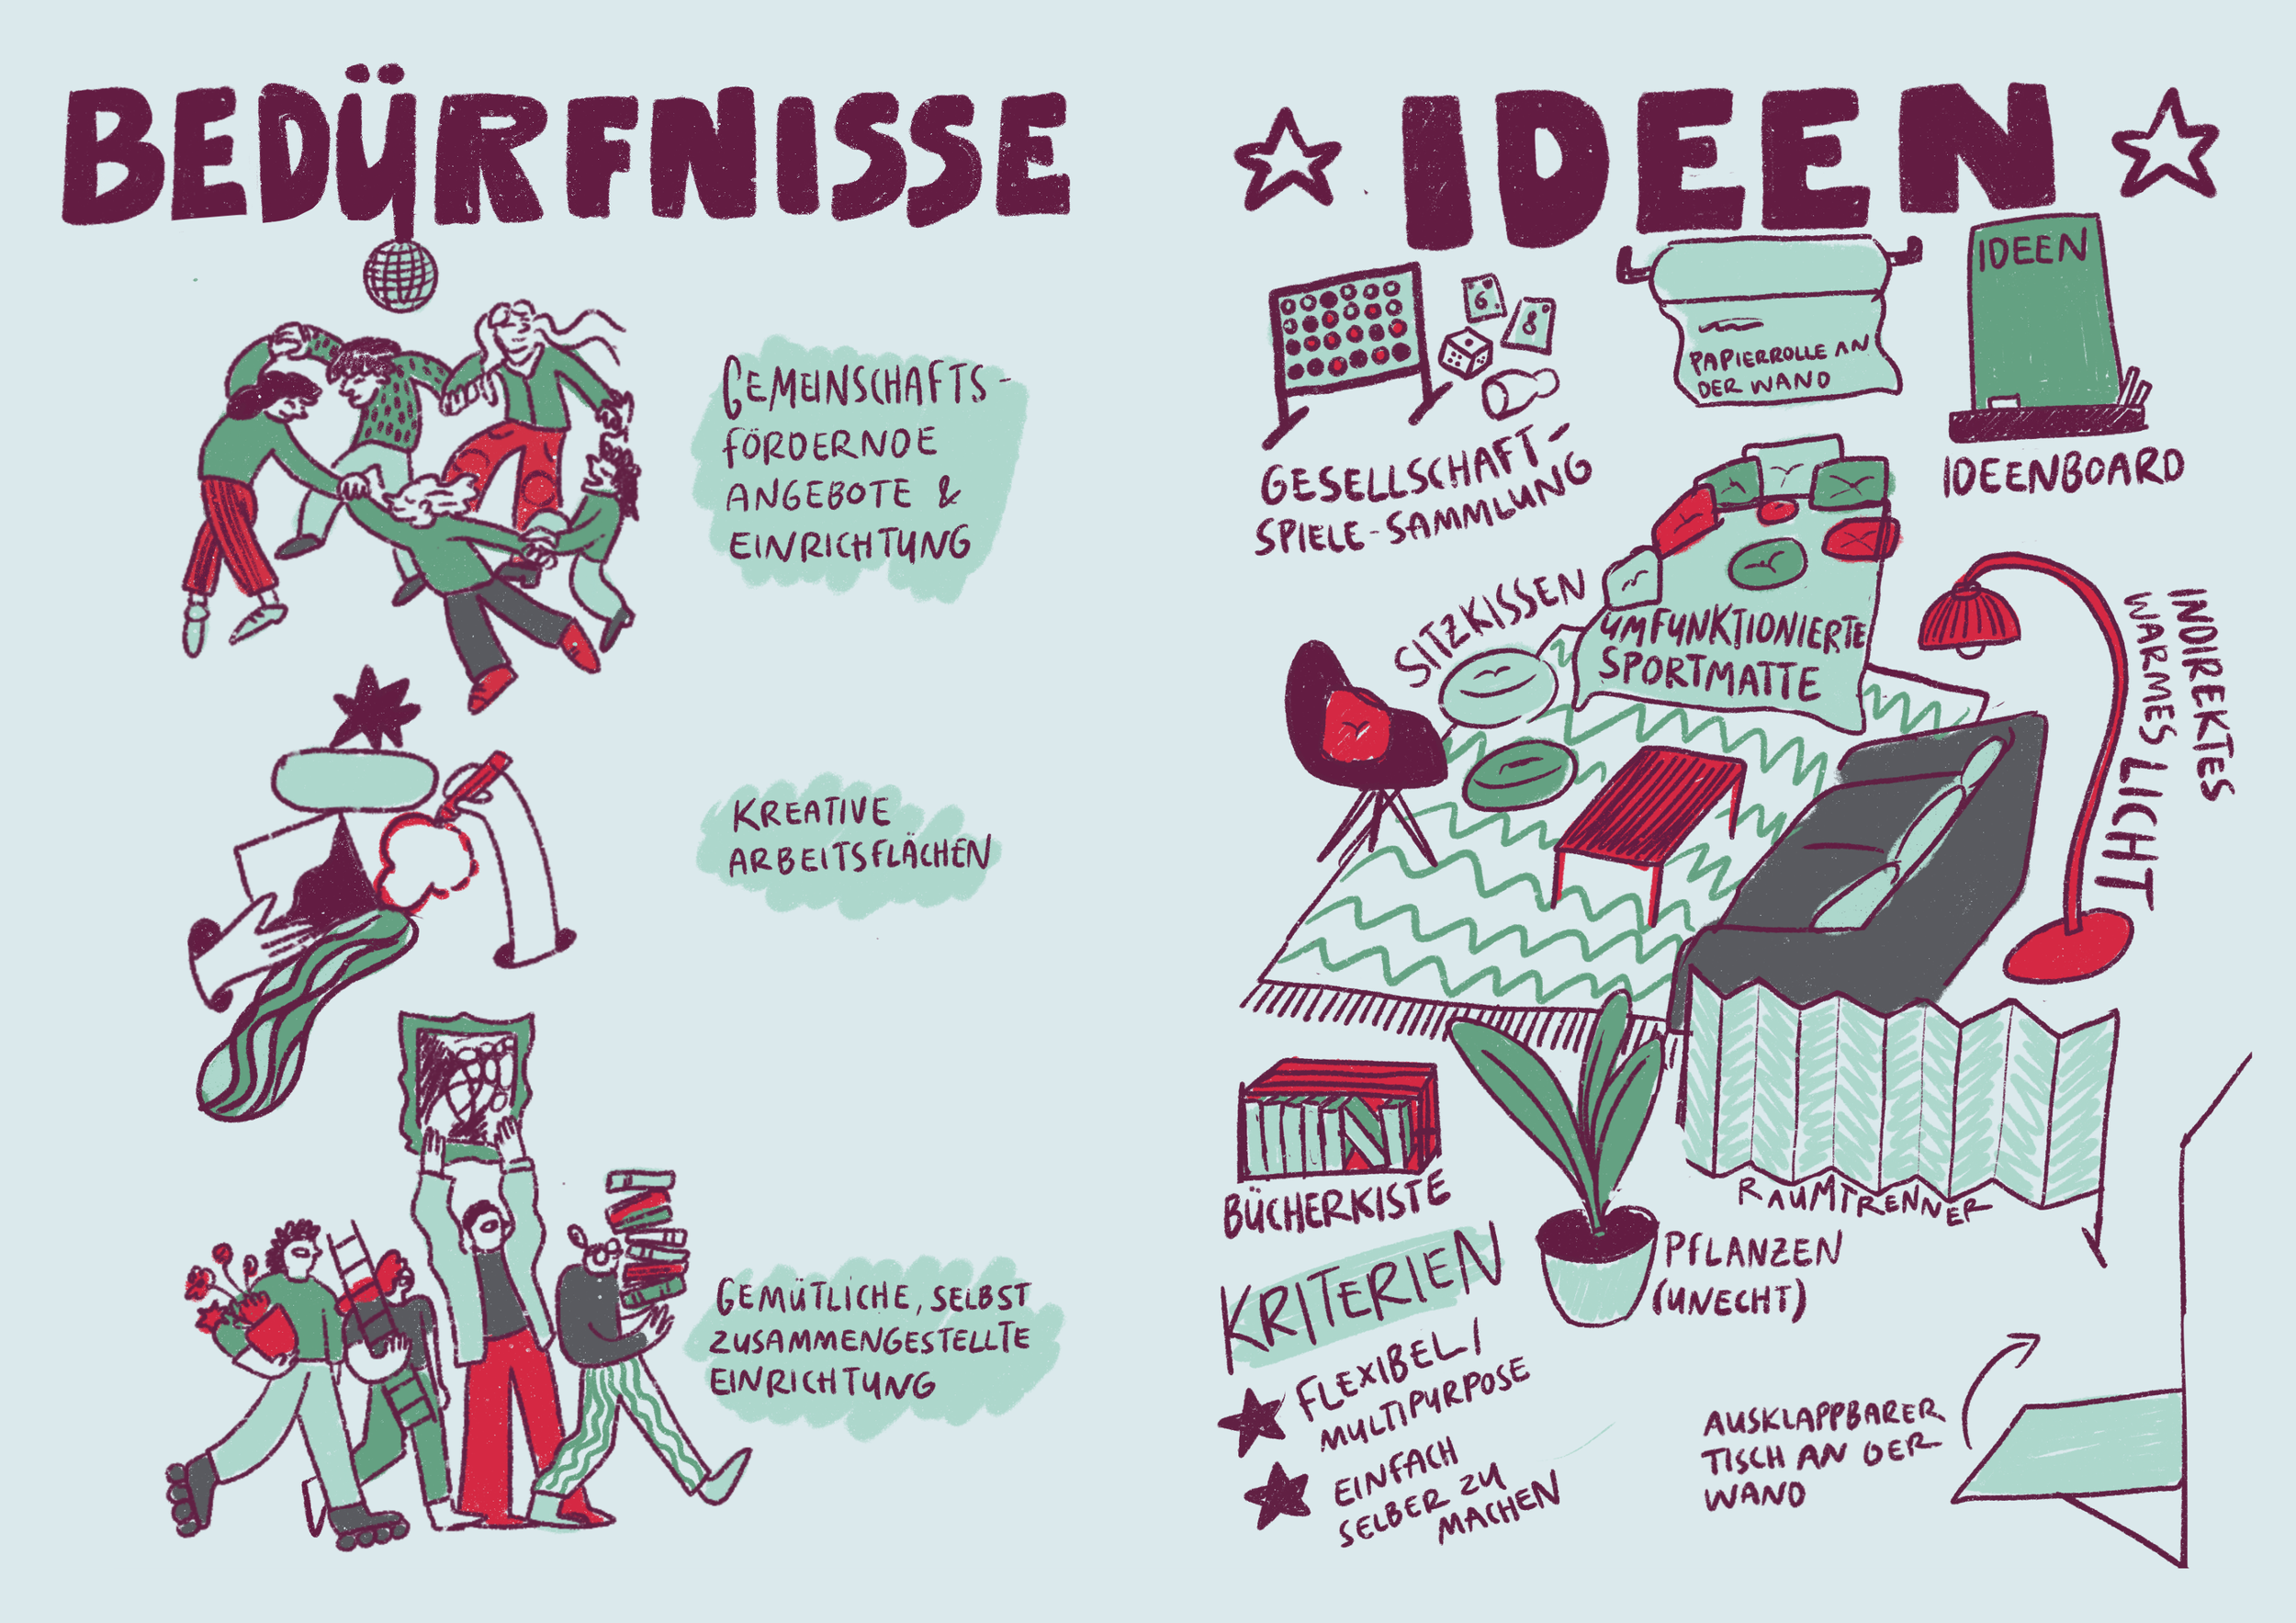 BEDÜRFNISSE
GEMEINSCHAFTS-
FÖRDERNDE
ANGEBOTE &
EINRICHTUNG
KREATIVE
ARBEITSFLÄCHEN
GEMÜTLICHE, SELBST
ZUSAMMENGESTELLTE
EINRICHTUNG
IDEEN
6
8
GESELLSCHAFT-
SPIELE-SAMMLUNG
PAPIERROLLE AN
DER WAND
IDEEN
IDEENBOARD
SITZKISSEN
UMFUNKTIONIERTE
SPORTMATTE
INDIREKTES
WARMES LICHT
BÜCHERKISTE
RAUMTRENNER
PFLANZEN
(UNECHT)
KRITERIEN
FLEXIBEL/
MULTIPURPOSE
EINFACH
SELBER ZU
MACHEN
AUSKLAPPBARER
TISCH AN DER
WAND